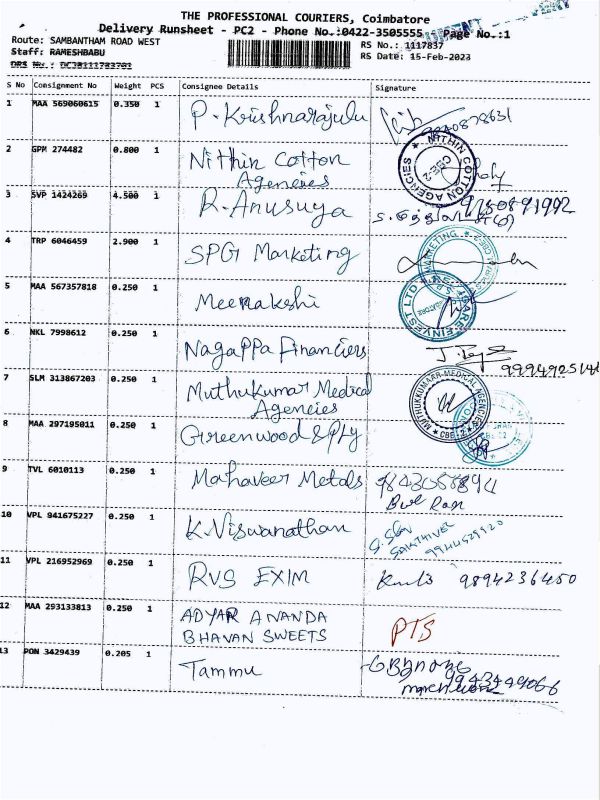 THE PROFESSIONAL COURIERS, Coimbatore
Delivery Runsheet - PC2 - Phone No.:0422-3505555 Page No.:1
Route: SAMBANTHAM ROAD WEST
RS No.: 1117837
Staff: RAMESHBABU
RS Date: 15-Feb-2023
S No Consignment No Weight PCS Consignee Details Signature
1 MAA 569060615 0.350 1 P. Krishnarajulu
2 GPM 274482 0.800 1 Nithin Cotton Agencies
NITHIN COTTON AGENCIES CBE-2
3 SVP 1424269 4.500 1 R. Anusuya
4 TRP 6046459 2.900 1 SPG Marketing
MARKETING
5 MAA 567357818 0.250 1 Meenakshi
6 NKL 7998612 0.250 1 Nagappa Financiers
7 SLM 313867203 0.250 1 Muthukumar Medical Agencies
MUTHUKKUMAAR MEDICAL AGENCIES CBE-2
8 MAA 297195011 0.250 1 Greenwood & Ply
9 TVL 6010113 0.250 1 Mahaveer Metals
10 VPL 941675227 0.250 1 K. Viswanathan
SAKTHIVEL
11 VPL 216952969 0.250 1 RVS EXIM 9894236450
12 MAA 293133813 0.250 1 ADYAR ANANDA BHAVAN SWEETS PTS
13 PON 3429439 0.205 1 Tammu